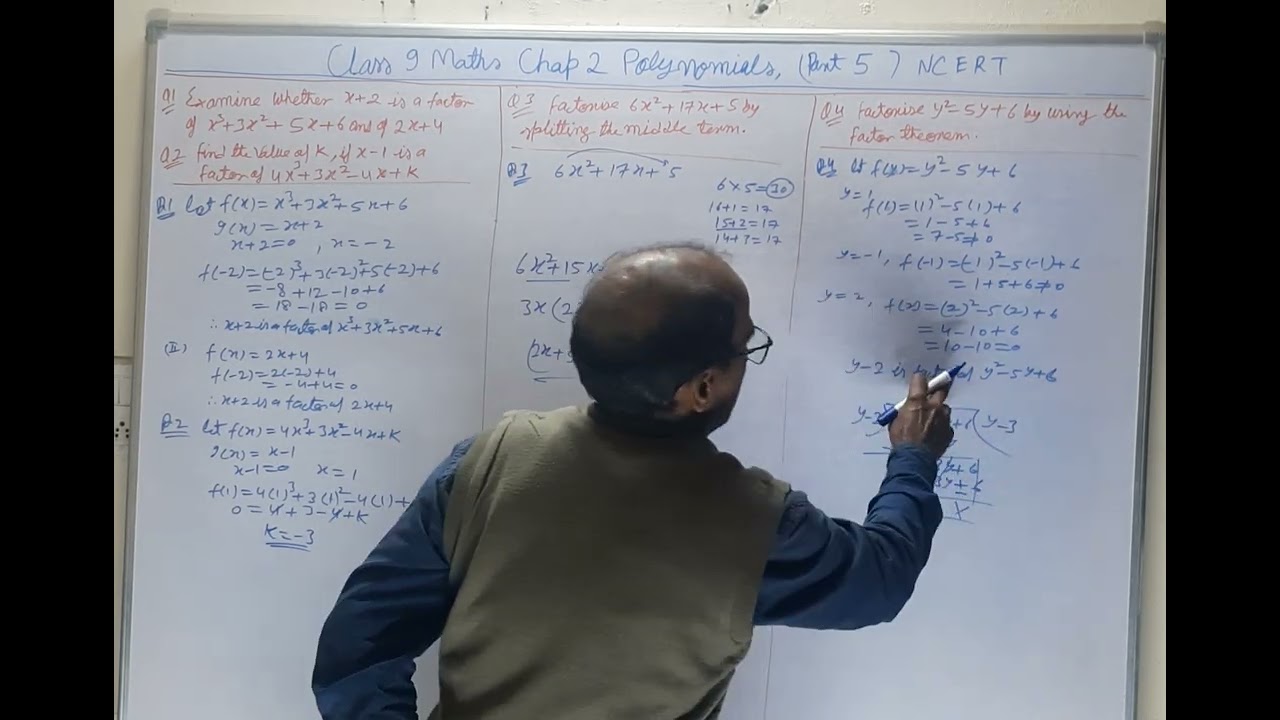 Class 9 Maths Chap 2 Polynomials, (Part 5) NCERT
Q1 Examine whether x+2 is a factor
of x³+3x²+5x+6 and of 2x+4
Q2 Find the value of K, if x-1 is a
factor of 4x³+3x²-4x+K
Q1 Let f(x)=x³+3x²+5x+6
g(x)=x+2
x+2=0, x=-2
f(-2)=(-2)³+3(-2)²+5(-2)+6
=-8+12-10+6
=18-18=0
∴ x+2 is a factor of x³+3x²+5x+6
(II) f(x)=2x+4
f(-2)=2(-2)+4
=-4+4=0
∴ x+2 is a factor of 2x+4
Q2 Let f(x)=4x³+3x²-4x+K
g(x)=x-1
x-1=0 x=1
f(1)=4(1)³+3(1)²-4(1)+
0=4+3-4+K
K=-3
Q3 Factorise 6x²+17x+5 by
splitting the middle term.
Q3 6x²+17x+5
6×5=30
16+1=17
15+2=17
14+3=17
6x²+15x
3x(2
(2x+5
Q4 Factorise y²-5y+6 by using the
factor theorem.
Q4 let f(y)=y²-5y+6
y=1
f(1)=(1)²-5(1)+6
=1-5+6
=7-5≠0
y=-1, f(-1)=(-1)²-5(-1)+6
=1+5+6≠0
y=2, f(2)=(2)²-5(2)+6
=4-10+6
=10-10=0
y-2 is of y²-5y+6
y-2 +6 (y-3
3y+6
3y+6
x